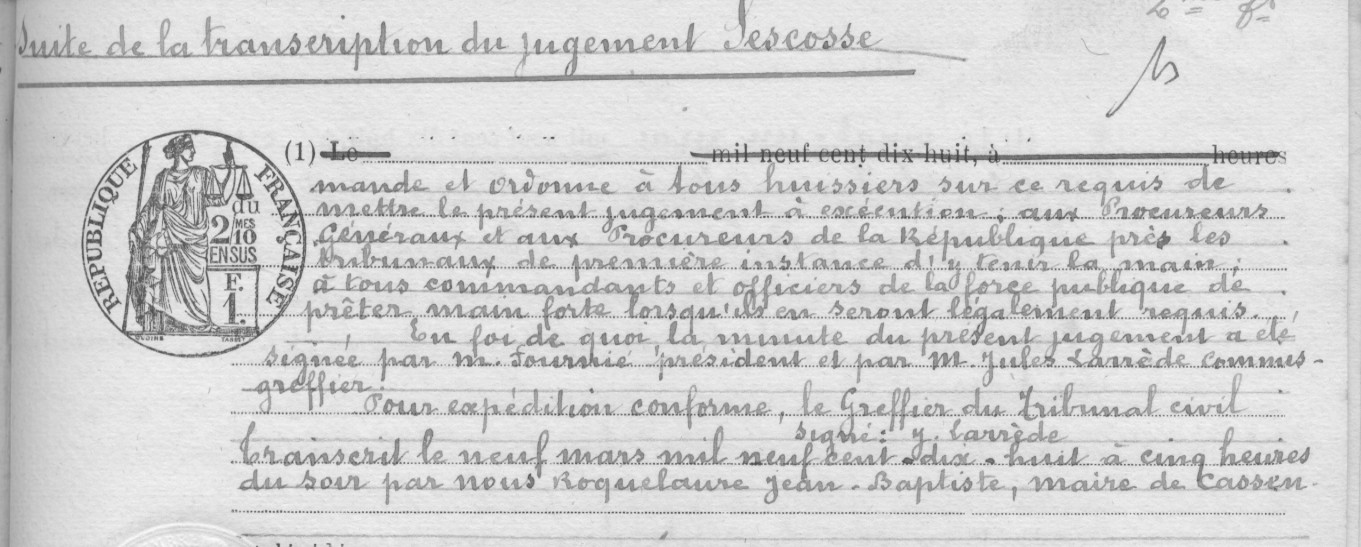 Suite de la transcription du jugement Lescosse
RÉPUBLIQUE FRANÇAISE
2 DU
MES
10
EN SUS
F.
1.
(1) Le mil neuf cent dix huit, à heures
mande et ordonne à tous huissiers sur ce requis de
mettre le présent jugement à exécution ; aux Procureurs
Généraux et aux Procureurs de la République près les
tribunaux de première instance d'y tenir la main ;
à tous commandants et officiers de la force publique de
prêter main forte lorsqu'ils en seront légalement requis.
En foi de quoi la minute du présent jugement a été
signée par M. Fournié président et par M. Jules Larrède commis-
greffier.
Pour expédition conforme, le Greffier du Tribunal civil
signé : J. Larrède
Transcrit le neuf mars mil neuf cent dix-huit à cinq heures
du soir par nous Roquelaure Jean-Baptiste, maire de Cassen.